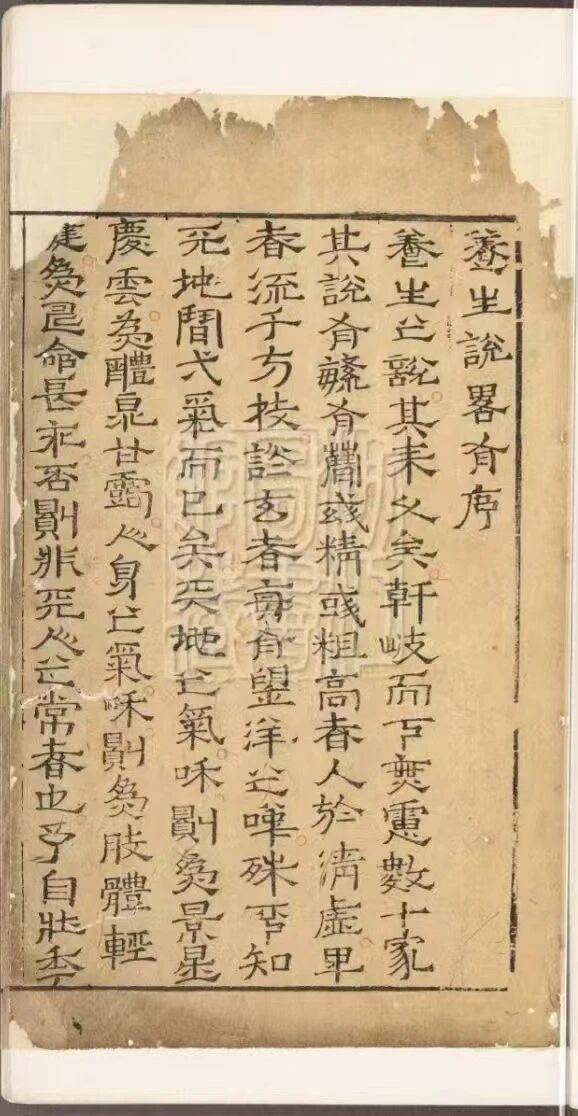 養生說畧有序
養生之說其來久矣軒岐而下無慮數十家
其說有繁有簡或精或粗高者入於清虛卑
者流于方技談玄者眞有望洋之嘆殊不知
天地間弌氣而已矣天地之氣咊則為景星
慶雲為醴泉甘露人身之氣咊則為肢體輕
健為永命長年否則非天人之常者也予自壯年